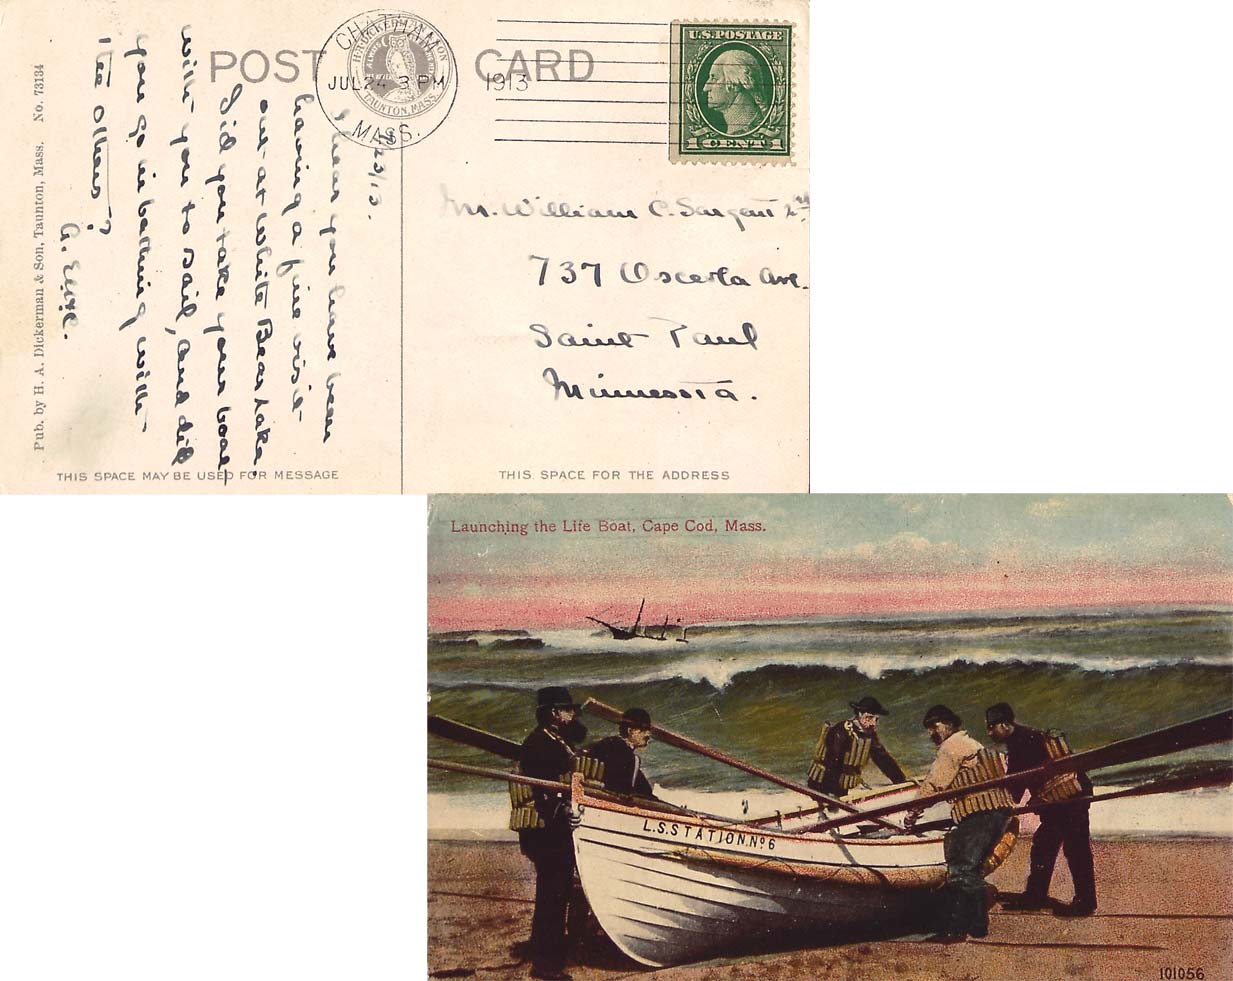 POST CARD
CHATHAM
JUL 24 3 PM
1913
MASS.
TAUNTON, MASS.
U.S. POSTAGE
1 CENT 1
Pub. by H. A. Dickerman & Son, Taunton, Mass. No. 73134
23/13.
I hear you have been
having a fine visit
out at White Bear Lake.
Did you take your boat
with you to sail, and did
you go in bathing with
the others?
Mr. William C. Sargent 2nd
737 Osceola Ave.
Saint Paul
Minnesota.
THIS SPACE MAY BE USED FOR MESSAGE
THIS SPACE FOR THE ADDRESS
Launching the Life Boat, Cape Cod, Mass.
L.S. STATION. No 6
101056